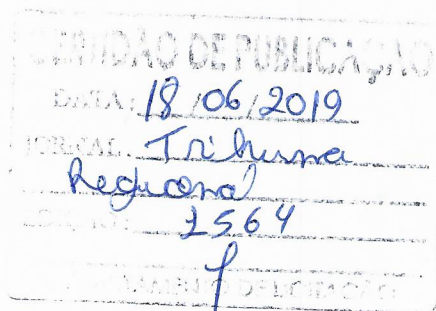 CERTIDÃO DE PUBLICAÇÃO
DATA: 18/06/2019
JORNAL: Tribuna
Regional
1564